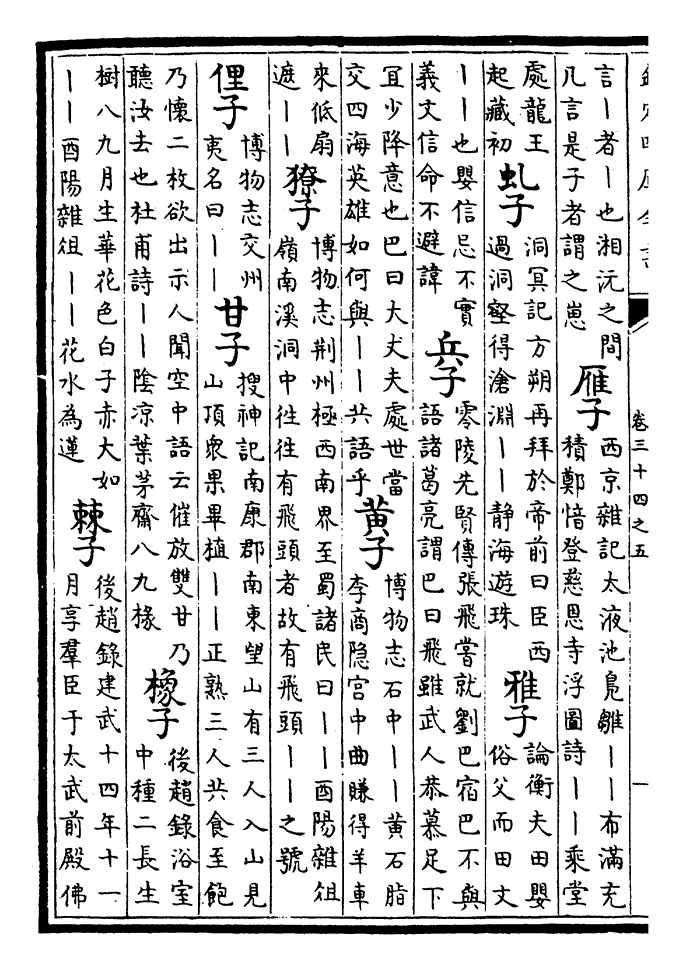 卷三十四之五
一
言丨者丨也湘沅之間
凡言是子者謂之崽
雁子
西京雜記太液池鳬雛丨丨布滿充
積鄭愔登慈恩寺浮圖詩丨丨乘堂
處龍王
起藏初
虬子
洞冥記方朔再拜於帝前曰臣西
過洞壑得滄淵丨丨靜海遊珠
雅子
論衡夫田嬰
俗父而田文
丨丨也嬰信忌不實
義文信命不避諱
兵子
零陵先賢傳張飛嘗就劉巴宿巴不與
語諸葛亮謂巴曰飛雖武人恭慕足下
宜少降意也巴曰大丈夫處世當
交四海英雄如何與丨丨共語乎
黄子
博物志石中丨丨黄石脂
李商隐宫中曲賺得羊車
來低扇
遮丨丨
獠子
博物志荆州極西南界至蜀諸民曰丨丨酉陽雜俎
嶺南溪洞中徃徃有飛頭者故有飛頭丨丨之號
俚子
博物志交州
夷名曰丨丨
甘子
搜神記南康郡南東望山有三人入山見
山頂衆果畢植丨丨正熟三人共食至飽
乃懷二枚欲出示人聞空中語云催放雙甘乃
聽汝去也杜甫詩丨丨陰涼葉茅齋八九椽
橡子
後趙錄浴室
中種二長生
樹八九月生華花色白子赤大如
丨丨酉陽雜俎丨丨花水為蓮
棘子
後趙錄建武十四年十一
月享羣臣于太武前殿佛